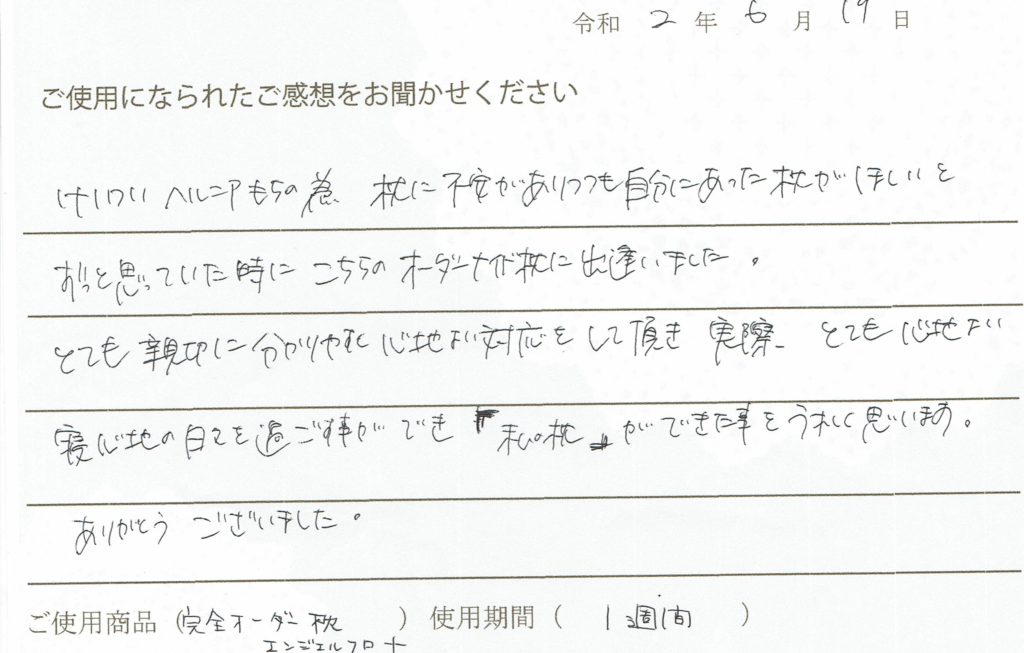 令和 2 年 6 月 19 日
ご使用になられたご感想をお聞かせください
けいつい ヘルニアもちの為 枕に不安がありつつも自分にあった枕がほしいと
ずっと思っていた時に こちらの オーダーメイド枕に出逢いました。
とても 親切に分かりやすく心地よい対応をして頂き 実際 とても心地よい
寝心地の日々を過ごす事ができ 『私の枕』ができた事をうれしく思います。
ありがとう ございました。
ご使用商品 (完全オーダー枕 ) 使用期間 ( 1週間 )
エンジェルフロート